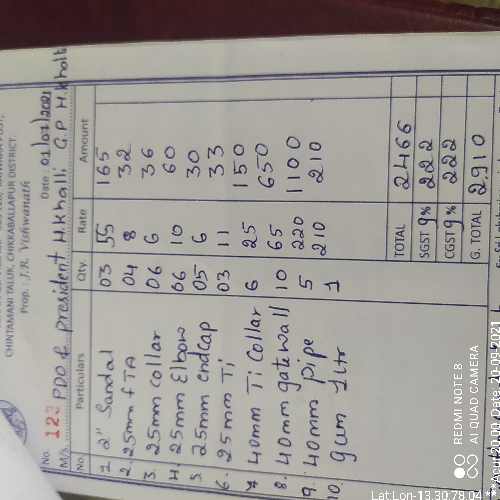 CHINTAMANI TALUK, CHIKKABALLAPUR DISTRICT.
Prop.: J.R. Vishwanath
No. 123 Date: 01/07/2021
M/s. PDO & president H.Khalli G.P H.Khalli
No. Particulars Qty. Rate Amount
1. 2" Sandal 03 55 165
2. 25mm FTA 04 8 32
3. 25mm collar 06 6 36
4. 25mm Elbow 06 10 60
5. 25mm endcap 05 6 30
6. 25mm Ti 03 11 33
7 40mm Ti Collar 6 25 150
8. 40mm gatewall 10 65 650
9. 40mm pipe 5 220 1100
10. gum 1ltr 1 210 210
TOTAL 2466
SGST 9% 222
CGST 9% 222
G. TOTAL 2910
REDMI NOTE 8
AI QUAD CAMERA